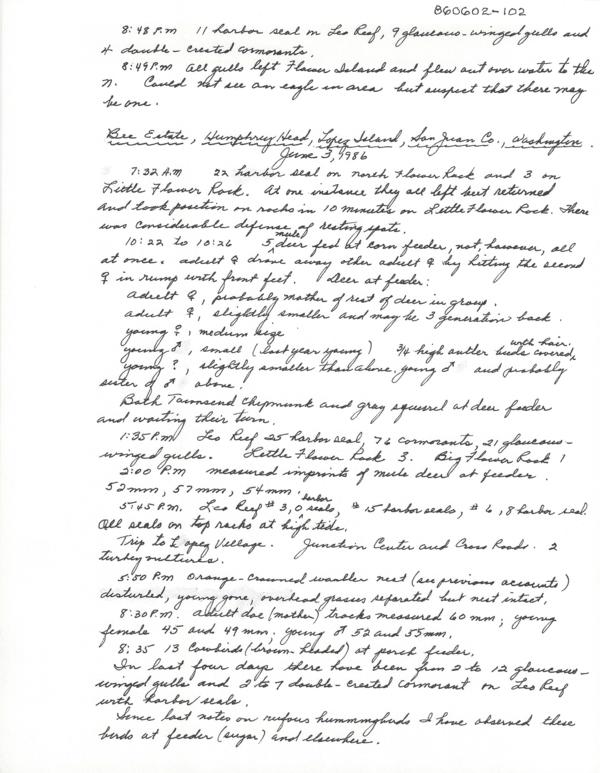 860602-102
8:48 P.M 11 harbor seal on Leo Reef, 9 glaucous-winged gulls and
4 double-crested cormorants.
8:49 P.M all gulls left Flower Island and flew out over water to the
N. Could not see an eagle in area but suspect that there may
be one.
Bee Estate, Humphrey Head, Lopez Island, San Juan Co., Washington.
June 3, 1986
7:32 A.M 22 harbor seal on north Flower Rock and 3 on
Little Flower Rock. At one instance they all left but returned
and took position on rocks in 10 minutes on Little Flower Rock. There
was considerable defense of resting spots.
10:22 to 10:26 5 mule deer fed at corn feeder, not, however, all
at once. adult ♀ drove away other adult ♀ by hitting the second
♀ in rump with front feet. Deer at feeder:
adult ♀, probably mother of rest of deer in group.
adult ♀, slightly smaller and may be 3 generation back.
young ?, medium size
young ♂, small (last year young) 3/4 high antler buds covered, with hair.
young ?, slightly smaller than above young ♂ and probably
sister of ♂ above.
Both Townsend Chipmunk and gray squirrel at deer feeder
and waiting their turn.
1:35 P.M. Leo Reef 25 harbor seal, 76 cormorants, 21 glaucous-
winged gulls. Little Flower Rock 3. Big Flower Rock 1
2:00 P.M measured imprints of mule deer at feeder.
52mm, 57mm, 54mm.
5:45 P.M. Leo Reef # 3, 0 harbor seals, # 15 harbor seals, # 6, 8 harbor seal.
All seals on top rocks at high tide.
Trip to Lopez Village. Junction Center and Cross Roads. 2
turkey vultures.
5:50 P.M Orange-crowned warbler nest (see previous accounts)
disturbed, young gone, overhead grasses separated but nest intact.
8:30 P.M. adult doe (mother) tracks measured 60 mm; young
female 45 and 49 mm; young ♂ 52 and 55mm.
8:35 13 Cowbirds (brown-headed) at porch feeder.
In last four days there have been from 2 to 12 glaucous-
winged gulls and 2 to 7 double-crested cormorant on Leo Reef
with harbor seals.
Since last notes on rufous hummingbirds I have observed these
birds at feeder (sugar) and elsewhere.